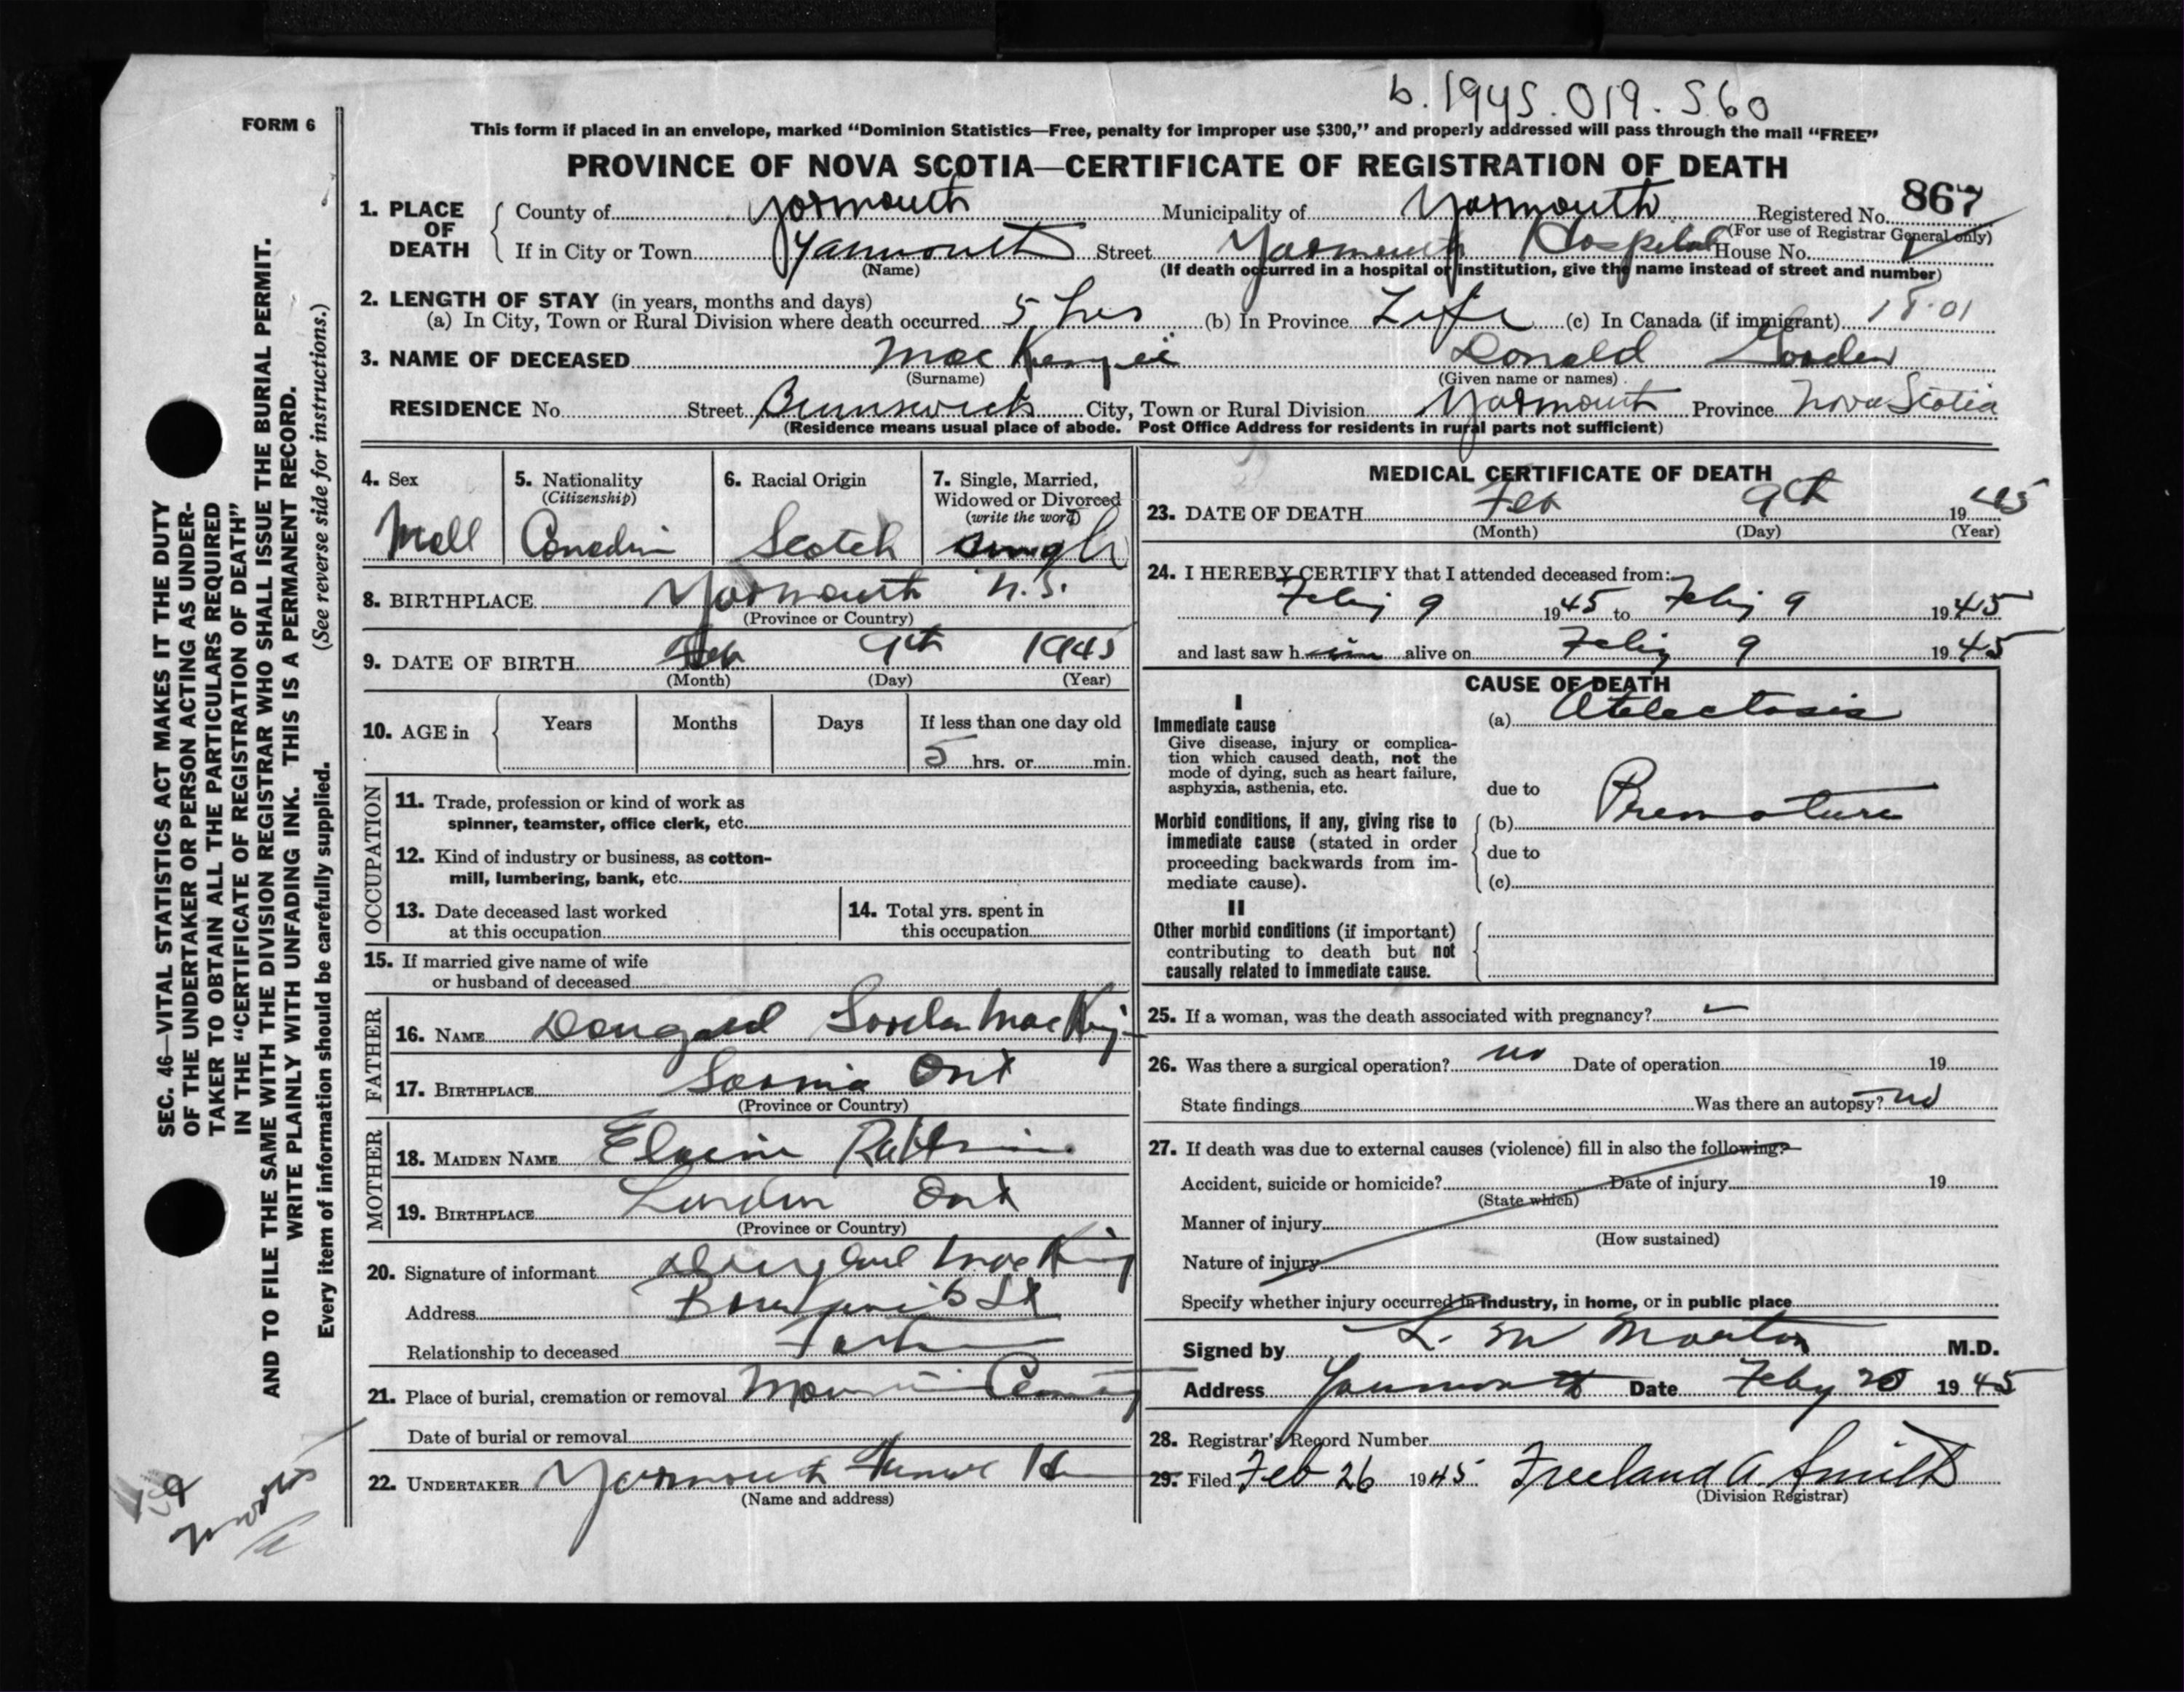 b. 1945.019.560
FORM 6
This form if placed in an envelope, marked “Dominion Statistics—Free, penalty for improper use $300,” and properly addressed will pass through the mail “FREE”
PROVINCE OF NOVA SCOTIA—CERTIFICATE OF REGISTRATION OF DEATH
1. PLACE OF DEATH
County of Yarmouth Municipality of Yarmouth Registered No. 867
(For use of Registrar General only)
If in City or Town Yarmouth Street Yarmouth Hospital House No.
(Name) (If death occurred in a hospital or institution, give the name instead of street and number)
2. LENGTH OF STAY (in years, months and days)
(a) In City, Town or Rural Division where death occurred 5 hrs (b) In Province Life (c) In Canada (if immigrant)
3. NAME OF DECEASED MacKenzie Donald
(Surname) (Given name or names)
RESIDENCE No. Street Brunswick City, Town or Rural Division Yarmouth Province Nova Scotia
(Residence means usual place of abode. Post Office Address for residents in rural parts not sufficient)
4. Sex 5. Nationality 6. Racial Origin 7. Single, Married,
(Citizenship) Widowed or Divorced
(write the word)
Mall Canadin Scotch Single
8. BIRTHPLACE Yarmouth N.S.
(Province or Country)
9. DATE OF BIRTH Feb 9th 1945
(Month) (Day) (Year)
10. AGE in Years Months Days If less than one day old
5 hrs. or min.
OCCUPATION
11. Trade, profession or kind of work as
spinner, teamster, office clerk, etc.
12. Kind of industry or business, as cotton-
mill, lumbering, bank, etc.
13. Date deceased last worked
at this occupation
14. Total yrs. spent in
this occupation
15. If married give name of wife
or husband of deceased
FATHER
16. NAME
17. BIRTHPLACE Sarnia Ont
(Province or Country)
MOTHER
18. MAIDEN NAME Elaine
19. BIRTHPLACE London Ont
(Province or Country)
20. Signature of informant
Address St
Relationship to deceased Father
21. Place of burial, cremation or removal
Date of burial or removal
22. UNDERTAKER Yarmouth
(Name and address)
MEDICAL CERTIFICATE OF DEATH
23. DATE OF DEATH Feb 9th 1945
(Month) (Day) (Year)
24. I HEREBY CERTIFY that I attended deceased from:
Feby 9 1945 to Feby 9 1945
and last saw him alive on Feby 9 1945
CAUSE OF DEATH
I
Immediate cause (a) Atelectasis
Give disease, injury or complica-
tion which caused death, not the
mode of dying, such as heart failure,
asphyxia, asthenia, etc.
due to
Morbid conditions, if any, giving rise to
immediate cause (stated in order
proceeding backwards from im-
mediate cause).
(b) Premature
due to
(c)
II
Other morbid conditions (if important)
contributing to death but not
causally related to immediate cause.
25. If a woman, was the death associated with pregnancy?
26. Was there a surgical operation? no Date of operation 19
State findings Was there an autopsy? no
27. If death was due to external causes (violence) fill in also the following:
Accident, suicide or homicide? Date of injury 19
(State which)
Manner of injury
(How sustained)
Nature of injury
Specify whether injury occurred in industry, in home, or in public place
Signed by L. M. Morton M.D.
Address Yarmouth Date Feby 20 1945
28. Registrar's Record Number
29. Filed Feb 26 1945 Freeland A. Smith
(Division Registrar)
SEC. 46—VITAL STATISTICS ACT MAKES IT THE DUTY
OF THE UNDERTAKER OR PERSON ACTING AS UNDER-
TAKER TO OBTAIN ALL THE PARTICULARS REQUIRED
IN THE “CERTIFICATE OF REGISTRATION OF DEATH”
AND TO FILE THE SAME WITH THE DIVISION REGISTRAR WHO SHALL ISSUE THE BURIAL PERMIT.
WRITE PLAINLY WITH UNFADING INK. THIS IS A PERMANENT RECORD.
Every item of information should be carefully supplied. (See reverse side for instructions.)